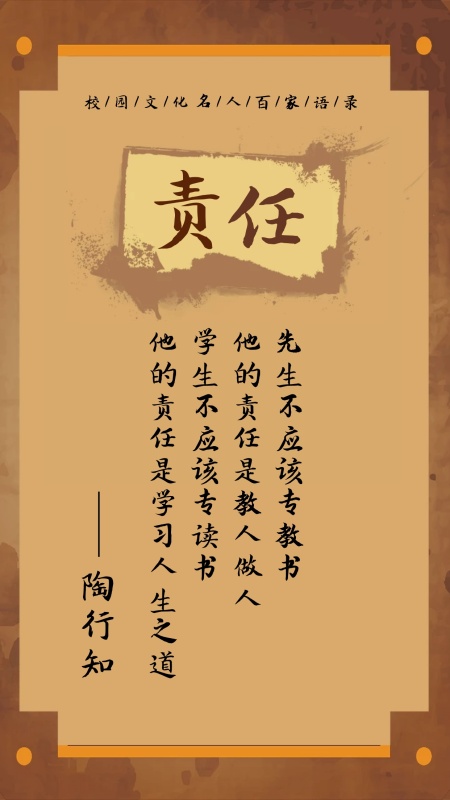 校/园/文/化名/人/百/家/语/录
责任
先生不应该专教书
他的责任是教人做人
学生不应该专读书
他的责任是学习人生之道
——陶行知